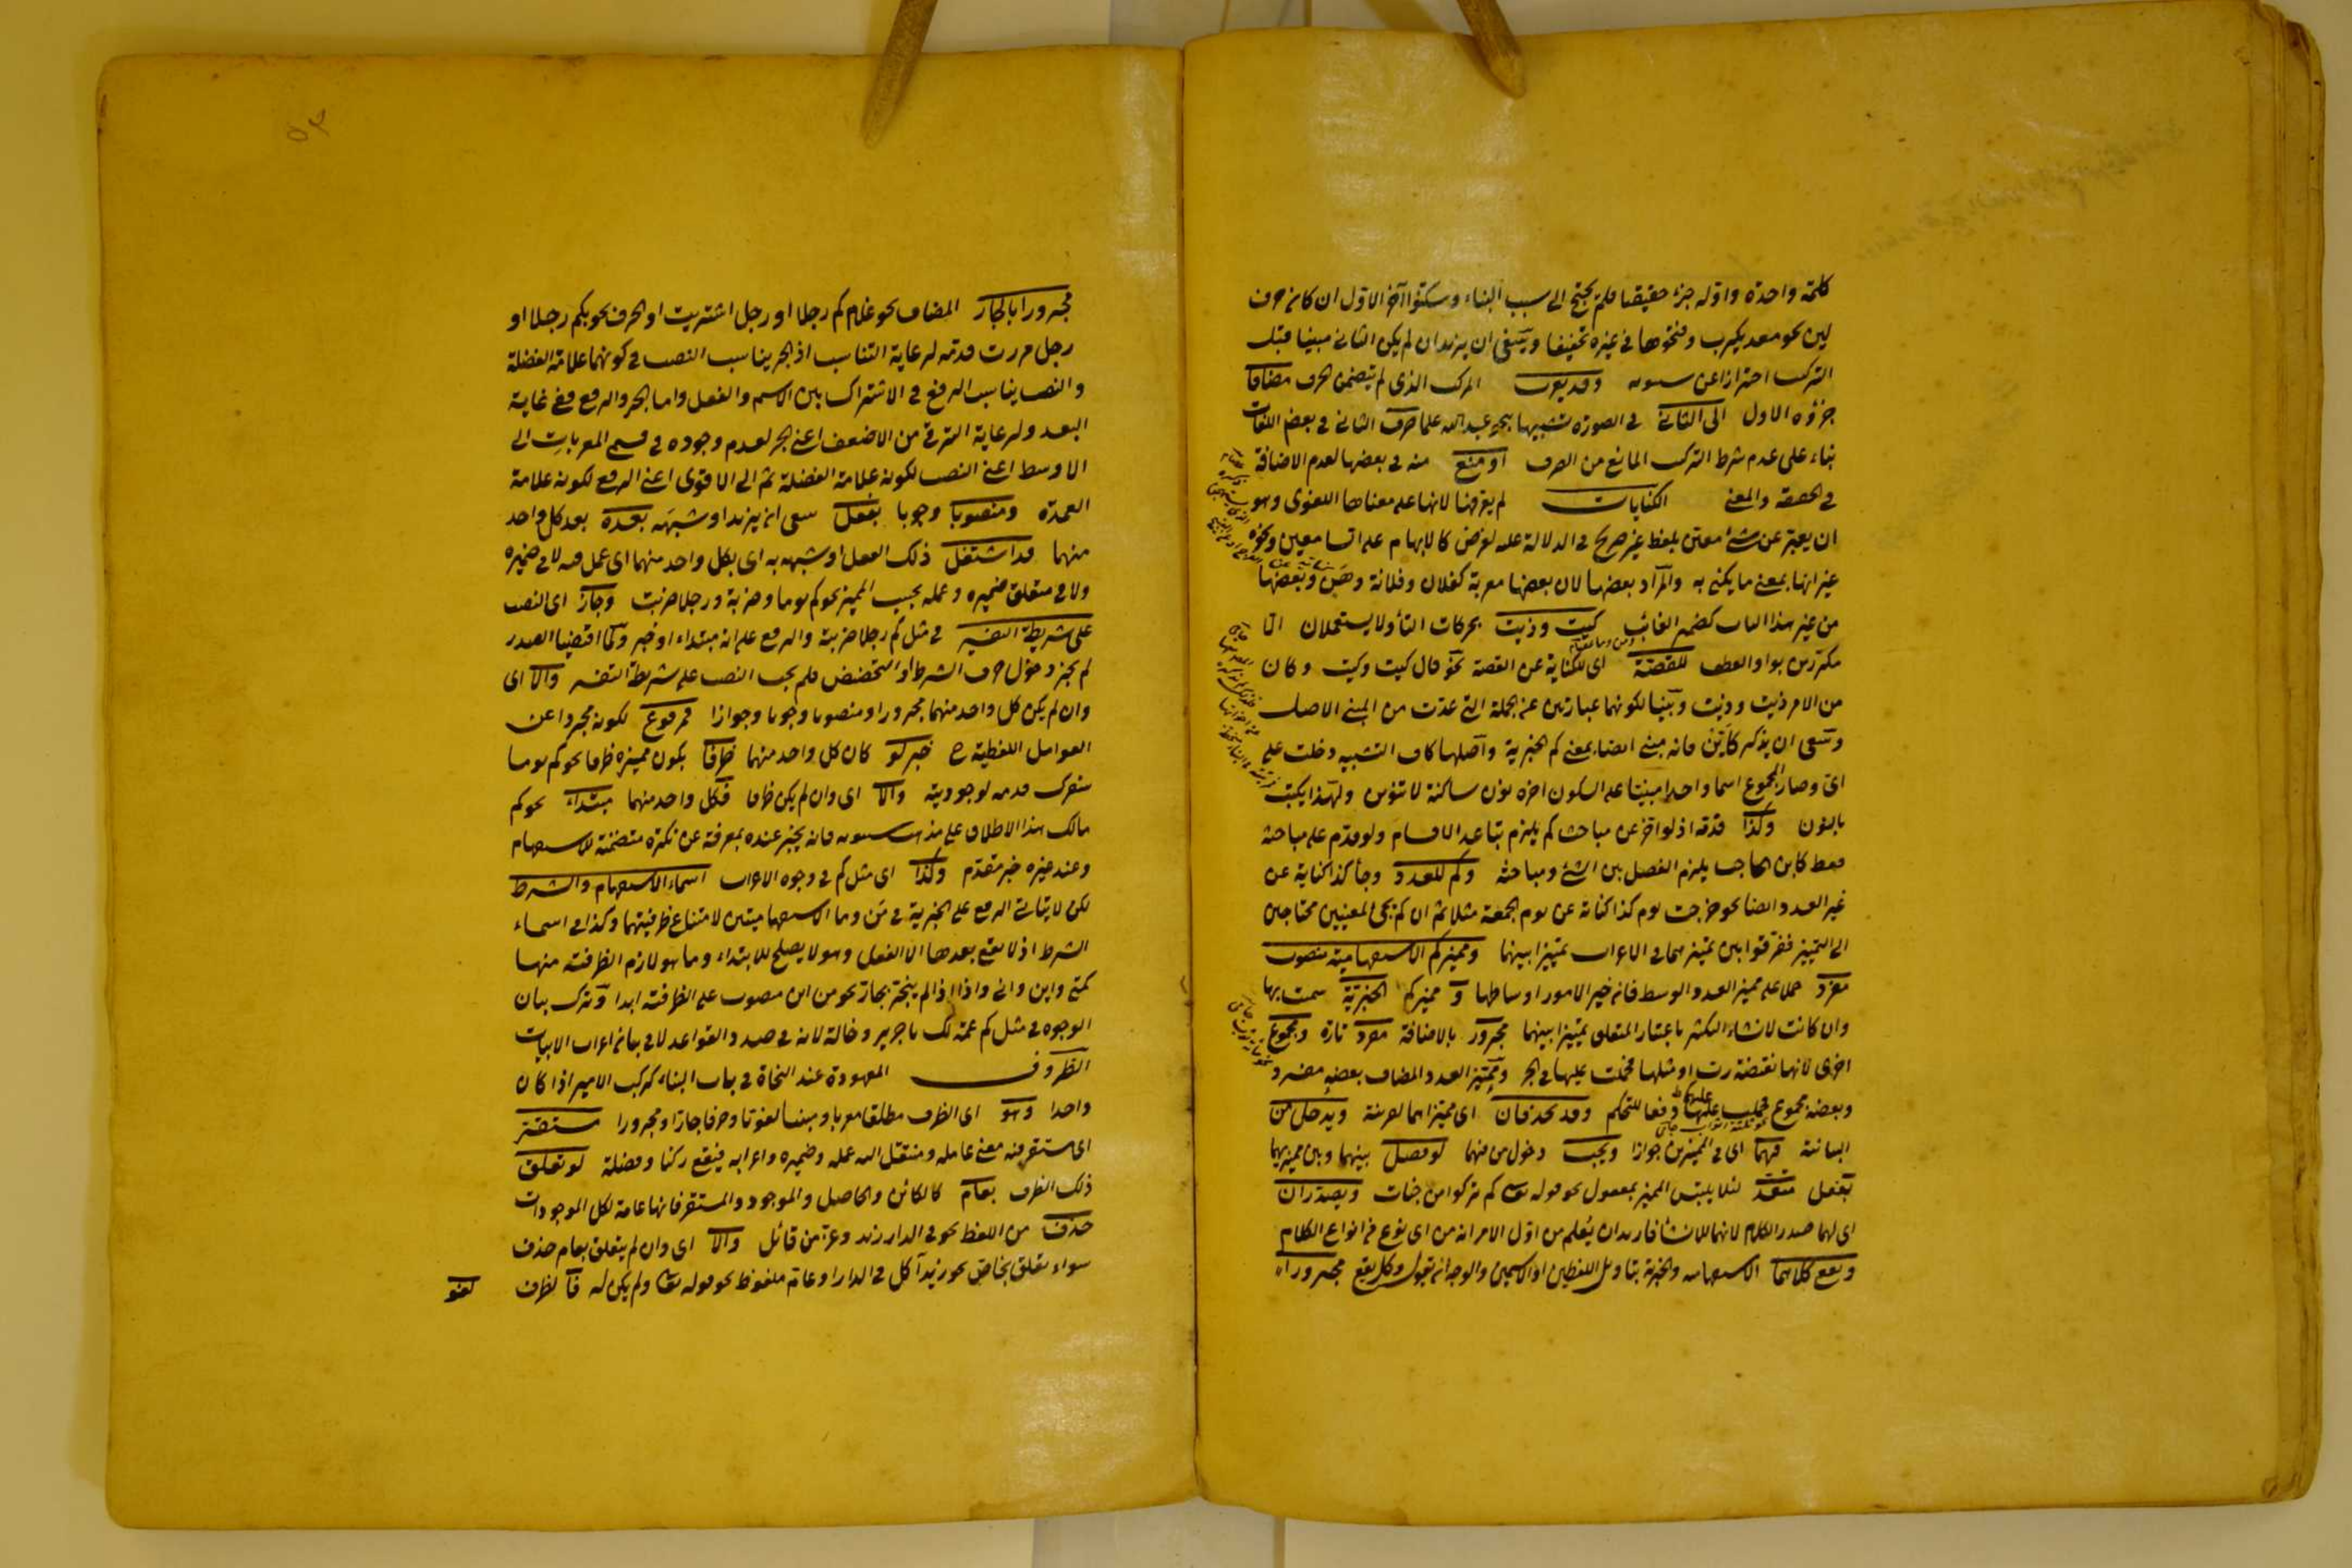 كلمة واحدة واوله جزء حقيقيا فلم يحتج الى سبب البناء وسكنوا آخر الاول ان كان حرف
لين نحو معديكرب وفتحوها في غيره تخفيفا وينبغي ان يزيد ان لم يكن الثاني مبنيا قبل
التركيب احترازا عن سيبويه وقد يعرب المركب الذي لم يتضمن الحرف مضافا
جزؤه الاول الى الثاني في الصورة تشبيها بنحو عبد الله علما صرف الثاني في بعض اللغات
بناء على عدم شرط التركيب المانع من الصرف او منع منه في بعضها لعدم الاضافة
في الحقيقة والمعنى الكنايات لم يعرفها لانها على معناها اللغوي وهو
ان يعبر عن شئ معين بلفظ غير صريح في الدلالة عليه لغرض كالابهام على سامعين ونحوه
غير انها بمعنى ما يكنى به والمراد بعضها لان بعضها معربة كفلان وفلانة وهن وبعضها
من غير هذا الباب كضمير الغائب كيت وذيت بحركات التاء ولا يستعملان الا
مكررين بواو العطف للقصة اى للكناية عن القصة نحو قال كيت وكيت وكان
من الامر ذيت وذيت وبنيا لكونهما عبارتين عن الجملة التي عدت من المبني الاصل
وينبغي ان يذكر كأين فانه مبني ايضا بمعنى كم الخبرية واصلها كاف التشبيه دخلت على
اى وصار المجموع اسما واحدا مبنيا على السكون اخره نون ساكنة لا تنوين ولهذا يكتب
بالنون وكذا قدمه اذ لو اخر عن مباحث كم يلزم تباعد الاقسام ولو قدم على مباحثه
فقط كابن الحاجب يلزم الفصل بين الشئ ومباحثه وكم للعدد وجاء كذا كناية عن
غير العدد ايضا نحو خرجت يوم كذا كناية عن يوم الجمعة مثلا ثم ان كم يجئ لمعنيين محتاجين
الى التمييز ففرقوا بين تمييزهما في الاعراب تمييزا بينهما ومميز كم الاستفهامية منصوب
مفرد حملا على مميز العدد الوسط فان خير الامور اوساطها و مميز كم الخبرية سميت بها
وان كانت لانشاء التكثير باعتبار المتعلق تمييزا بينهما مجرور بالاضافة مفرد تارة ومجموع
اخرى لانها نقيضة رب او مثلها فحملت عليها في الجر ومميز العدد المضاف بعضه مفرد
وبعضه مجموع فحملت عليهما دفعا للتحكم وقد يحذفان اى مميزاهما لقرينة ويدخل من
البيانية فيهما اى في المميزين جوازا ويجب دخول من فيهما لو فصل بينهما وبين مميزيهما
بفعل متعد لئلا يلتبس المميز بمفعول نحو قوله تعالى كم تركوا من جنات ويصدران
اى لهما صدر الكلام لانهما للانشاء فاريد ان يعلم من اول الامر انه من اى نوع من انواع الكلام
ويقع كلاهما الاستفهامية والخبرية بتأويل اللفظين او الاسمين والوجه ان يقول وكل يقع مجرورا
مجرورا بالجار المضاف نحو غلام كم رجلا او رجل اشتريت او الحرف نحو بكم رجلا او
رجل مررت قدمه لرعاية التناسب اذ الجر يناسب النصب في كونهما علامة الفضلة
والنصب يناسب الرفع في الاشتراك بين الاسم والفعل واما الجر والرفع ففي غاية
البعد ولرعاية الترقي من الاضعف اعني الجر لعدم وجوده في قسم المعربات الى
الاوسط اعني النصب لكونه علامة الفضلة ثم الى الاقوى اعني الرفع لكونه علامة
العمدة ومنصوبا وجوبا بفعل ينبغي ان يزيد او شبهه بعده بعد كل واحد
منهما قد اشتغل ذلك الفعل او شبهه به اى بكل واحد منهما اى عمل فيه لا في ضميره
ولا في متعلق ضميره وعمله بحسب المميز نحو كم يوما وضربة ورجلا ضربت وجاز اى النصب
على شريطة التفسير في مثل كم رجلا ضربته والرفع على انه مبتداء او خبر ولما اقتضيا الصدر
لم يجز دخول حرف الشرط او التحضيض فلم يجب النصب على شريطة التفسير والا اى
وان لم يكن كل واحد منهما مجرورا او منصوبا وجوبا وجوازا فمرفوع لكونه مجردا عن
العوامل اللفظية ح خبر لو كان كل واحد منهما ظرفا بكون مميزه ظرفا نحو كم يوما
سفرك قدمه لوجوديته والا اى وان لم يكن ظرفا فكل واحد منهما مبتداء نحو كم
مالك هذا الاطلاق على مذهب سيبويه فانه يخبر عنده بمعرفة عن نكرة متضمنة للاستفهام
وعند غيره خبر مقدم وكذا اى مثل كم في وجوه الاعراب اسماء الاستفهام والشرط
لكن لا يتأتى الرفع على الخبرية في من وما الاستفهاميتين لامتناع ظرفيتهما وكذا في اسماء
الشرط اذ لا يقع بعدها الا الفعل وهو لا يصلح للابتداء وما هو لازم الظرفية منها
كمتى واين وانى واذا اذا لم ينجر بجار نحو من اين منصوب على الظرفية ابدا وترك بيان
الوجوه في مثل كم عمة لك يا جرير وخالة لانه في صدد القواعد لا في بيان اعراب الابيات
الظروف المعهودة عند النحاة في باب البناء كركب الامير اذا كان
واحدا وهو اى الظرف مطلقا معربا او مبنيا لغويا وحرفا جارا ومجرورا مستقر
اى مستقر فيه معنى عامله ومنتقل اليه عمله وضميره واعرابه فيقع ركنا وفضلة لو تعلق
ذلك الظرف بعام كالكائن والحاصل والموجود والمستقر فانها عامة لكل الموجودات
حذف من اللفظ نحو في الدار زيد وعزمن قائل والا اى وان لم يتعلق بعام حذف
سواء تعلق بخاص نحو زيد آكل في الدار او عام ملفوظ نحو قوله تعالى ولم يكن له فالظرف
لغو